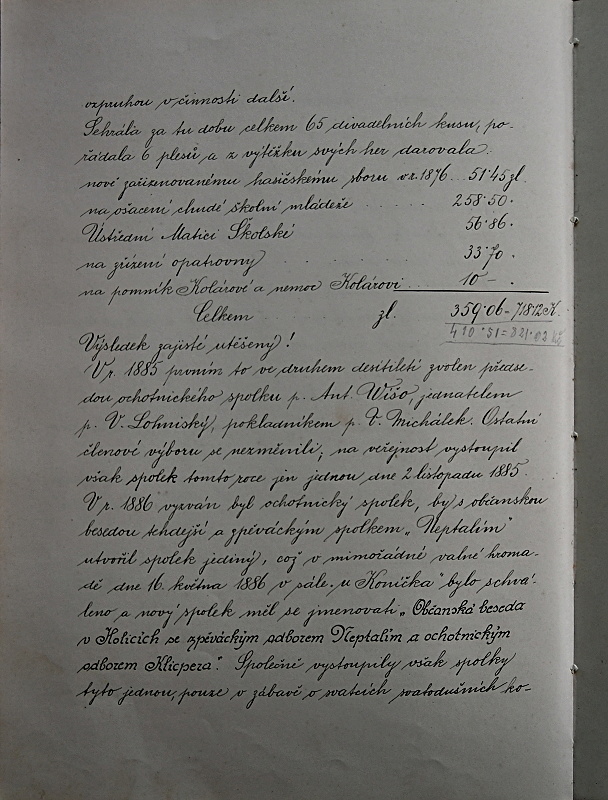 vzpruhou v činnosti další.
Sehrála za tu dobu celkem 65 divadelních kusu, po-
řádala 6 plesů a z výtěžku svých her darovala:
nově zařízenovanému hasičskému sboru v r. 1876 . . . 51·45 zl.
na ošacení chudé školní mládeže . . . . . 258·50 ·
Ústřední Matici Školské 56·86 ·
na zřízení opatrovny . . . . . . 33·70 ·
na pomník Kolárové a nemoc Kolárovi . . . 10 – ·
Celkem zl. 359·06 – 718·12 K.
410·51 = 821·02 Kč
Výsledek zajisté utěšený!
V r. 1885 prvním to ve druhém desítiletí zvolen předse-
dou ochotnického spolku p. Ant. Wišo, jednatelem
p. V. Lohniský, pokladníkem p. V. Michálek. Ostatní
členové výboru se nezměnili; na veřejnost vystoupil
však spolek tomto roce jen jednou dne 2 listopadu 1885.
V r. 1886 vyzván byl ochotnický spolek, by s občanskou
besedou tehdejší a zpěváckým spolkem „Neptalím"
utvořil spolek jediný, což v mimořádné valné hroma-
dě dne 16. května 1886 v sále „u Koníčka" bylo schvá-
leno a nový spolek měl se jmenovati „Občanská beseda
v Holicích se zpěváckým odborem Neptalím a ochotnickým
odborem Klicpera". Společně vystoupily však spolky
tyto jednou, pouze v zábavě o svatcích svatodušních ko-